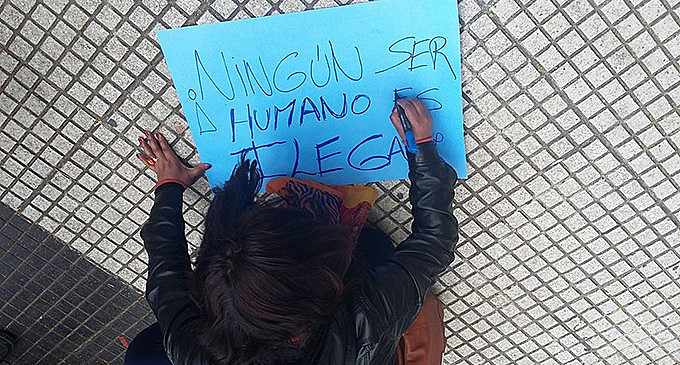 ¡NINGÚN SER
HUMANO ES
ILEGAL